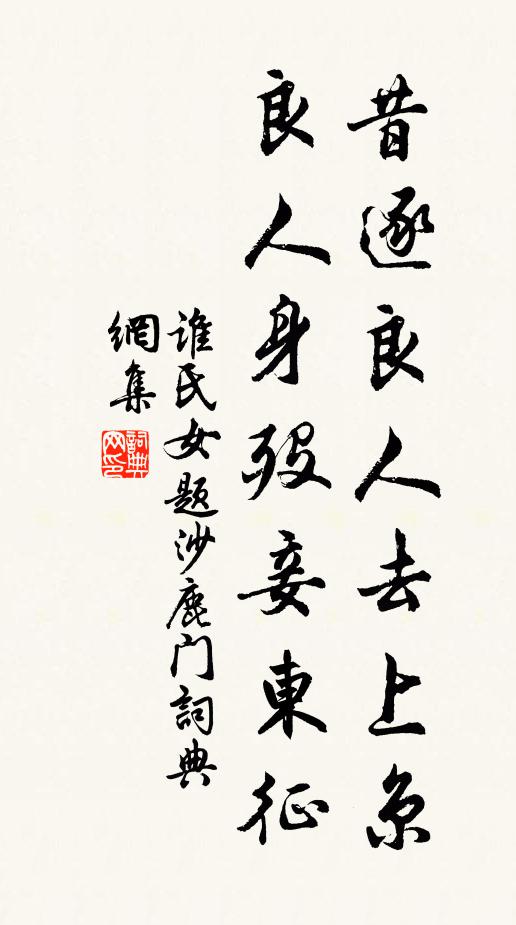 昔逐良人去上京
良人身歿妾東征
誰氏女題沙鹿門詞典
網集
詞典网印